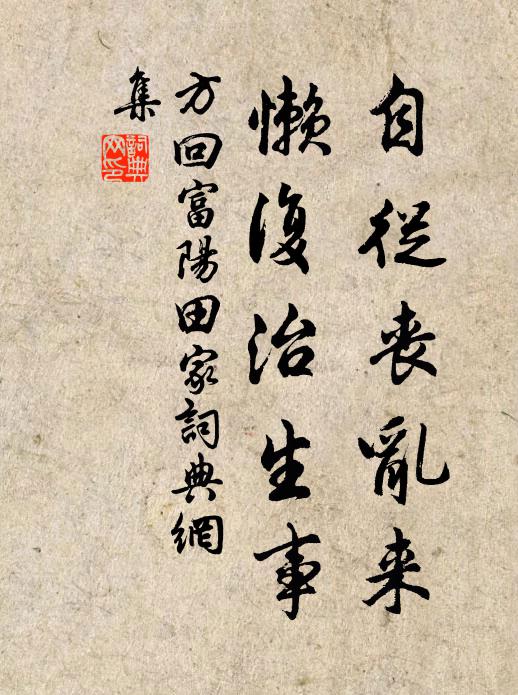 自從喪亂来
懶復治生事
方回富陽田家詞典網
集
詞典